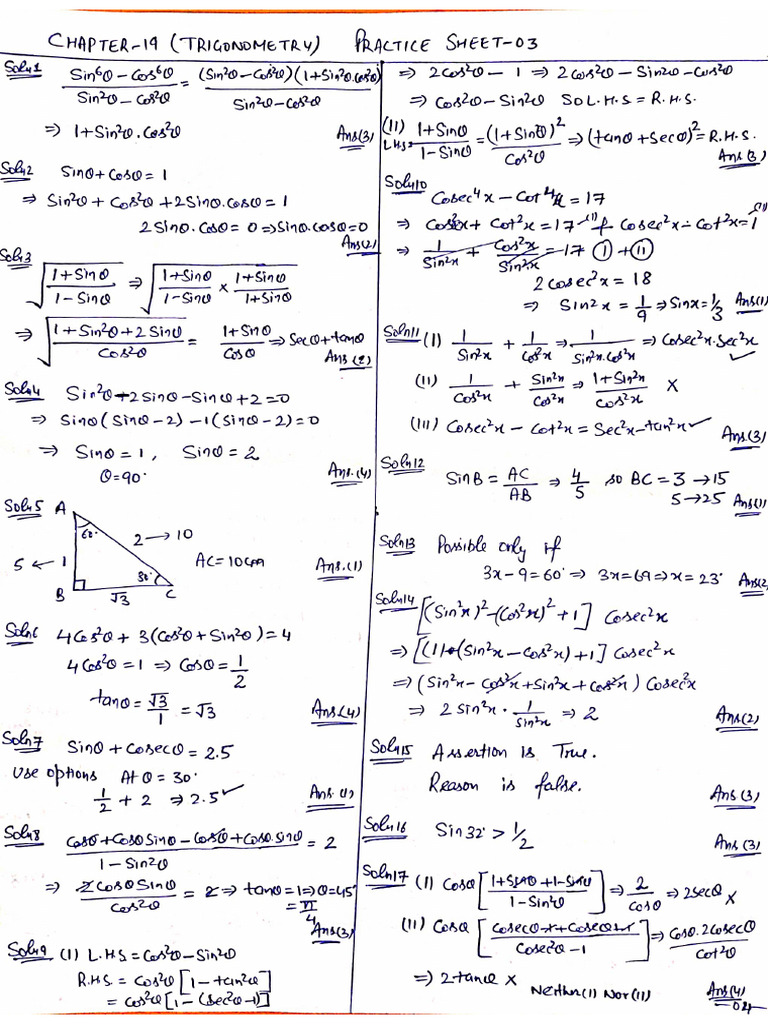 CHAPTER-19 (TRIGONOMETRY) PRACTICE SHEET-03
Soln1 Sin⁶θ - Cos⁶θ / Sin²θ - Cos²θ = (Sin²θ - Cos²θ)(1+Sin²θ.Cos²θ) / Sin²θ - Cos²θ
⇒ 1+Sin²θ.Cos²θ Ans(3)
Soln2 Sinθ+Cosθ = 1
⇒ Sin²θ + Cos²θ + 2Sinθ.Cosθ = 1
2Sinθ.Cosθ = 0 ⇒ Sinθ.Cosθ = 0
Ans(2)
Soln3 √(1+Sinθ / 1-Sinθ) ⇒ √(1+Sinθ / 1-Sinθ × 1+Sinθ / 1+Sinθ)
⇒ √(1+Sin²θ+2Sinθ / Cos²θ) = 1+Sinθ / Cosθ ⇒ Secθ+tanθ
Ans(2)
Soln4 Sin²θ-2Sinθ-Sinθ+2=0
⇒ Sinθ(Sinθ-2)-1(Sinθ-2)=0
⇒ Sinθ=1, Sinθ=2
θ=90° Ans.(4)
Soln5 A
60°
2→10
5←1 AC=10cm Ans.(1)
30°
B √3 C
Soln6 4Cos²θ + 3(Cos²θ+Sin²θ)=4
4Cos²θ=1 ⇒ Cosθ=1/2
tanθ = √3/1 = √3 Ans(4)
Soln7 Sinθ+Cosecθ = 2.5
Use options At θ=30°
1/2 + 2 ⇒ 2.5✓ Ans(1)
Soln8 Cosθ+CosθSinθ-Cosθ+Cosθ.Sinθ / 1-Sin²θ = 2
⇒ 2CosθSinθ / Cos²θ = 2 ⇒ tanθ=1 ⇒ θ=45°
= π/4
Ans(3)
Soln9 (I) L.H.S = Cos²θ-Sin²θ
R.H.S = Cos²θ[1-tan²θ]
= Cos²θ[1-(Sec²θ-1)]
⇒ 2Cos²θ-1 ⇒ 2Cos²θ-Sin²θ-Cos²θ
⇒ Cos²θ-Sin²θ So L.H.S = R.H.S.
(II) L.H.S= 1+Sinθ / 1-Sinθ = (1+Sinθ)² / Cos²θ ⇒ (tanθ+Secθ)² = R.H.S.
Ans(3)
Soln10 Cosec⁴x - Cot⁴x = 17
⇒ Cosec²x + Cot²x = 17 -(I) & Cosec²x - Cot²x = 1 (II)
⇒ 1/Sin²x + Cos²x/Sin²x = 17 (I)+(II)
2Cosec²x = 18
⇒ Sin²x = 1/9 ⇒ Sinx = 1/3 Ans(1)
Soln11 (I) 1/Sin²x + 1/Cos²x ⇒ 1/Sin²x.Cos²x ⇒ Cosec²x.Sec²x ✓
(II) 1/Cos²x + Sin²x/Cos²x ⇒ 1+Sin²x / Cos²x X
(III) Cosec²x - Cot²x = Sec²x-tan²x ✓ Ans(3)
Soln12 SinB = AC/AB ⇒ 4/5 so BC=3→15
5→25 Ans(1)
Soln13 Possible only if
3x-9=60° ⇒ 3x=69 ⇒ x=23° Ans(2)
Soln14 [(Sin²x)²-(Cos²x)²+1] Cosec²x
⇒ [(1)(Sin²x-Cos²x)+1] Cosec²x
⇒ (Sin²x-Cos²x+Sin²x+Cos²x) Cosec²x
⇒ 2Sin²x · 1/Sin²x ⇒ 2 Ans(2)
Soln15 Assertion is True.
Reason is false. Ans(3)
Soln16 Sin32° > 1/2 Ans(3)
Soln17 (I) Cosθ [1+Sinθ+1-Sinθ / 1-Sin²θ] ⇒ 2/Cosθ ⇒ 2Secθ X
(II) Cosθ [Cosecθ-1+Cosecθ+1 / Cosec²θ-1] ⇒ Cosθ.2Cosecθ / Cot²θ
⇒ 2tanθ X Neither (I) Nor (II) Ans(4)